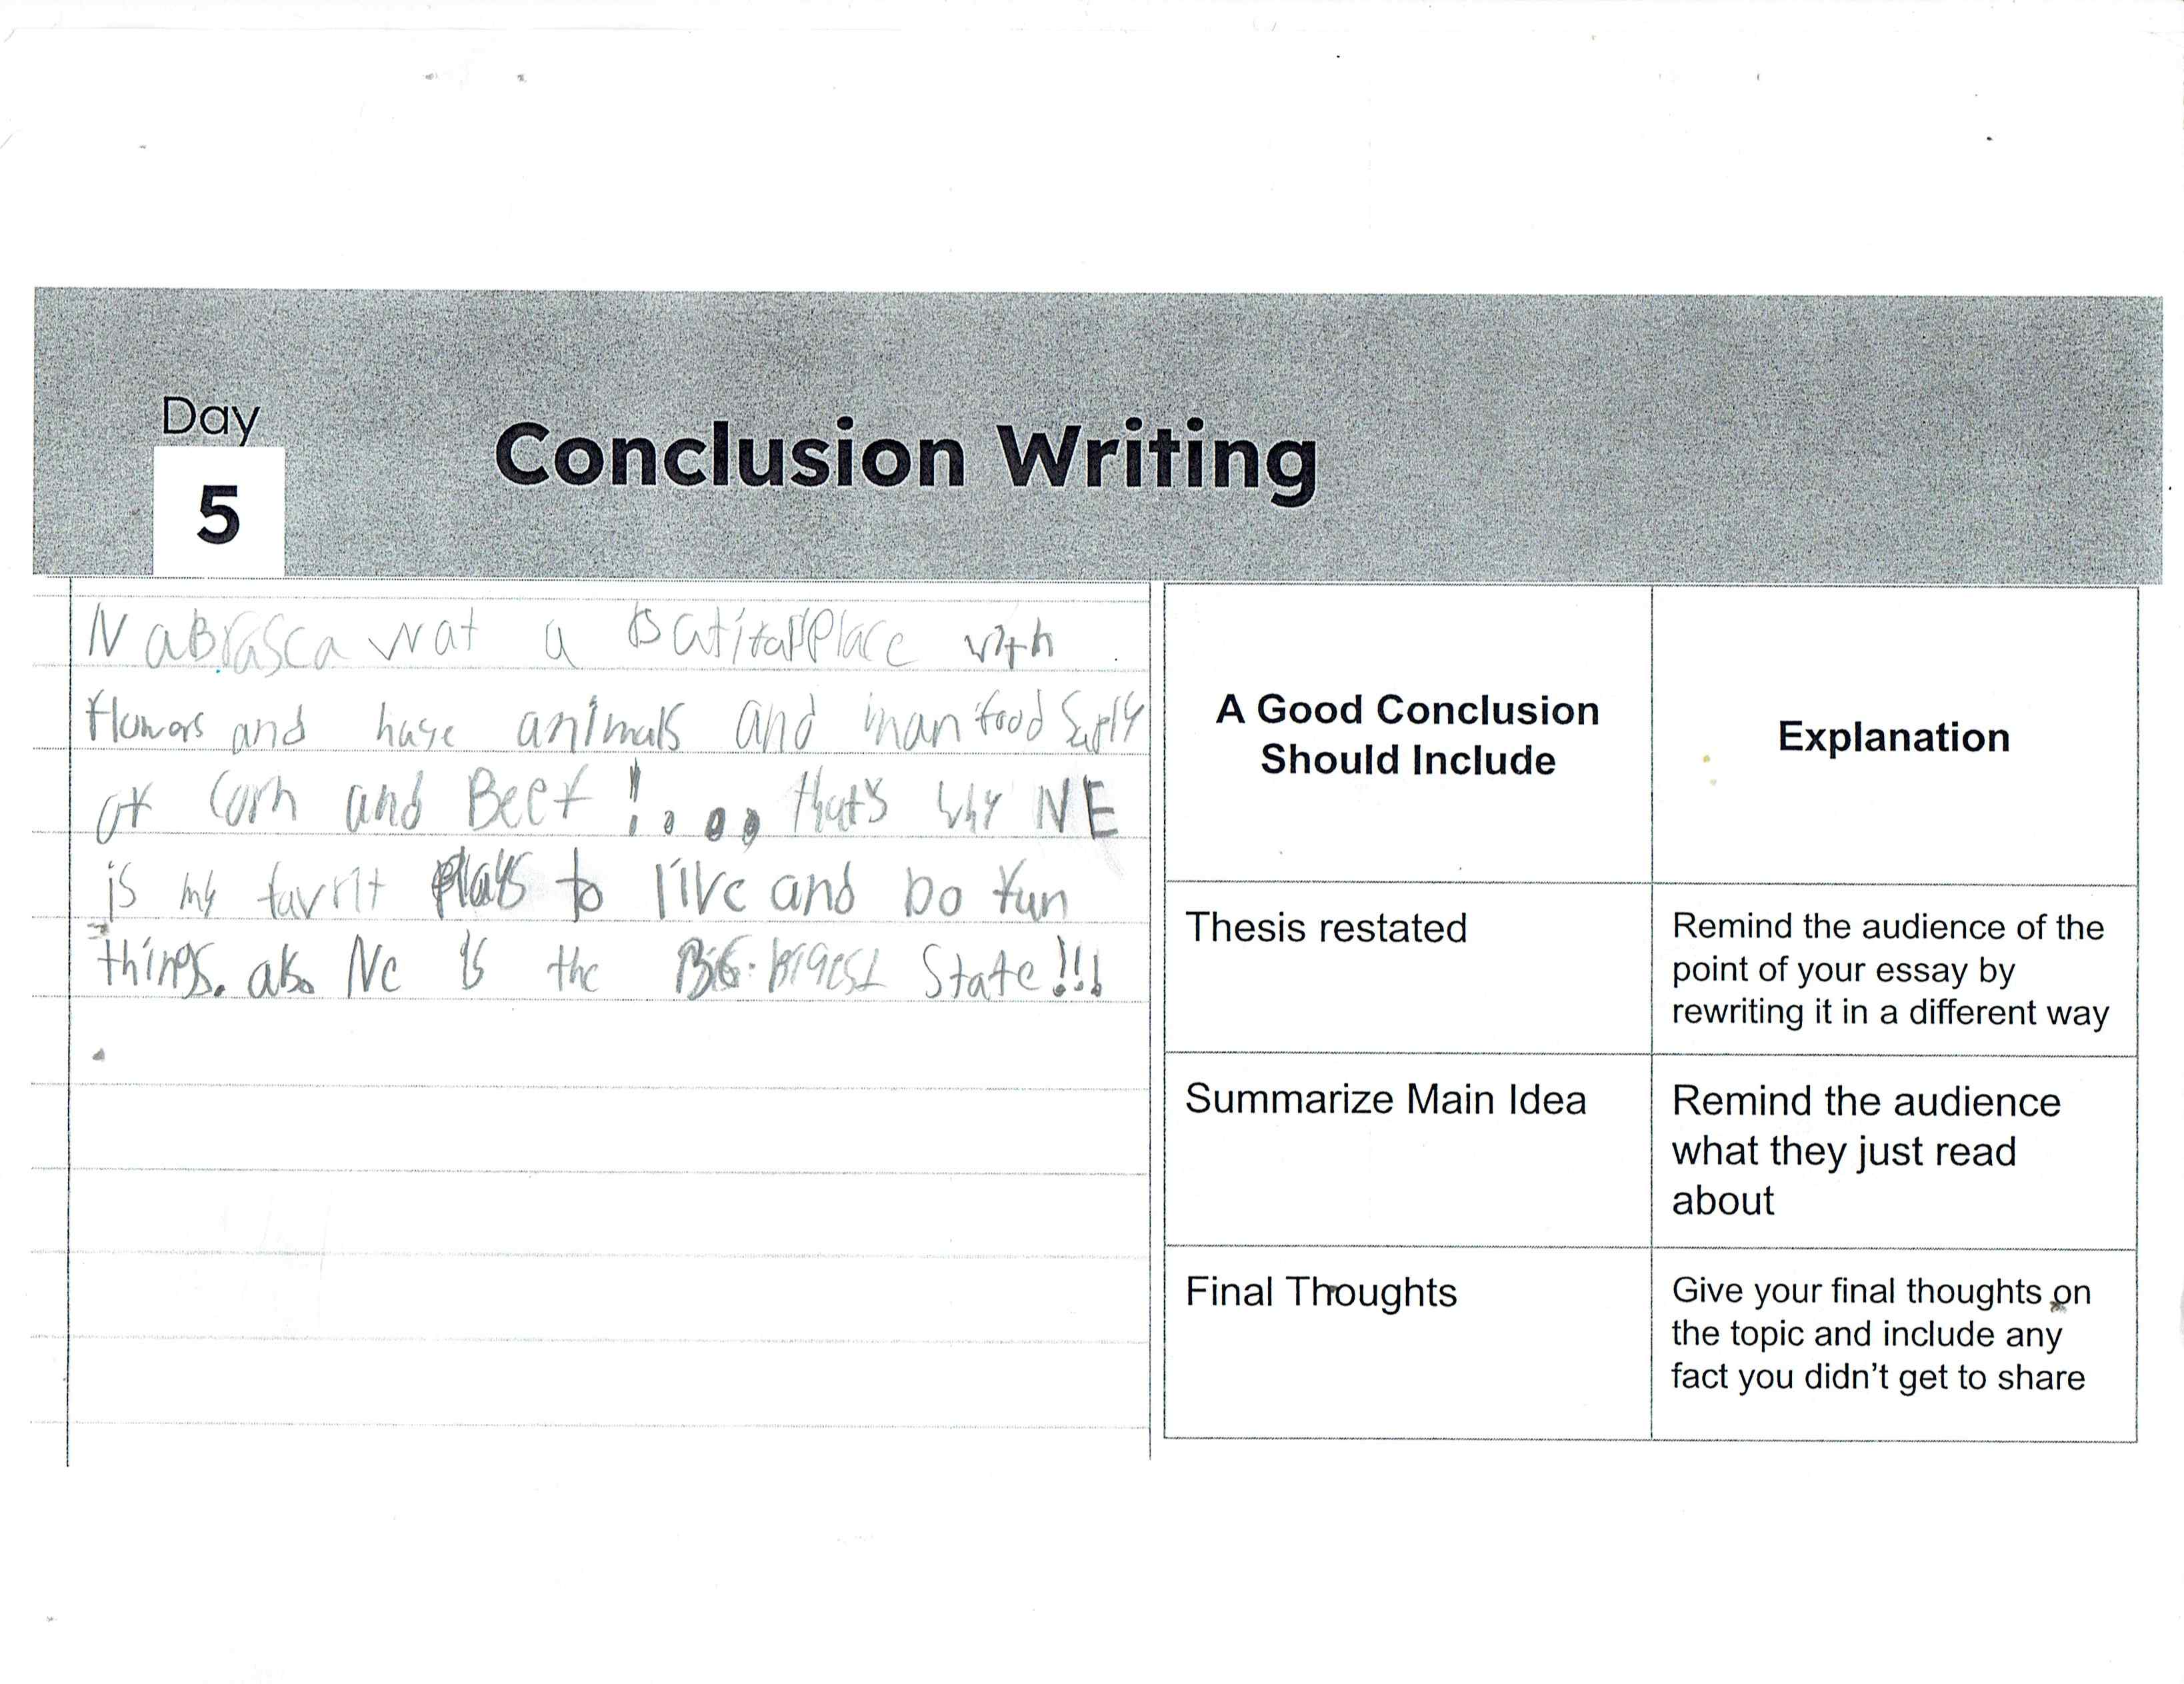 Day
5
Conclusion Writing
NaBrasca wat a Batifal Place with
flowors and huge animals and inan food Suply
of Corn and Beef !... that's why NE
is my favrit plays to live and bo fun
things. also Ne is the BiG-bigest State!!!
A Good Conclusion
Should Include
Explanation
Thesis restated
Remind the audience of the
point of your essay by
rewriting it in a different way
Summarize Main Idea
Remind the audience
what they just read
about
Final Thoughts
Give your final thoughts on
the topic and include any
fact you didn't get to share